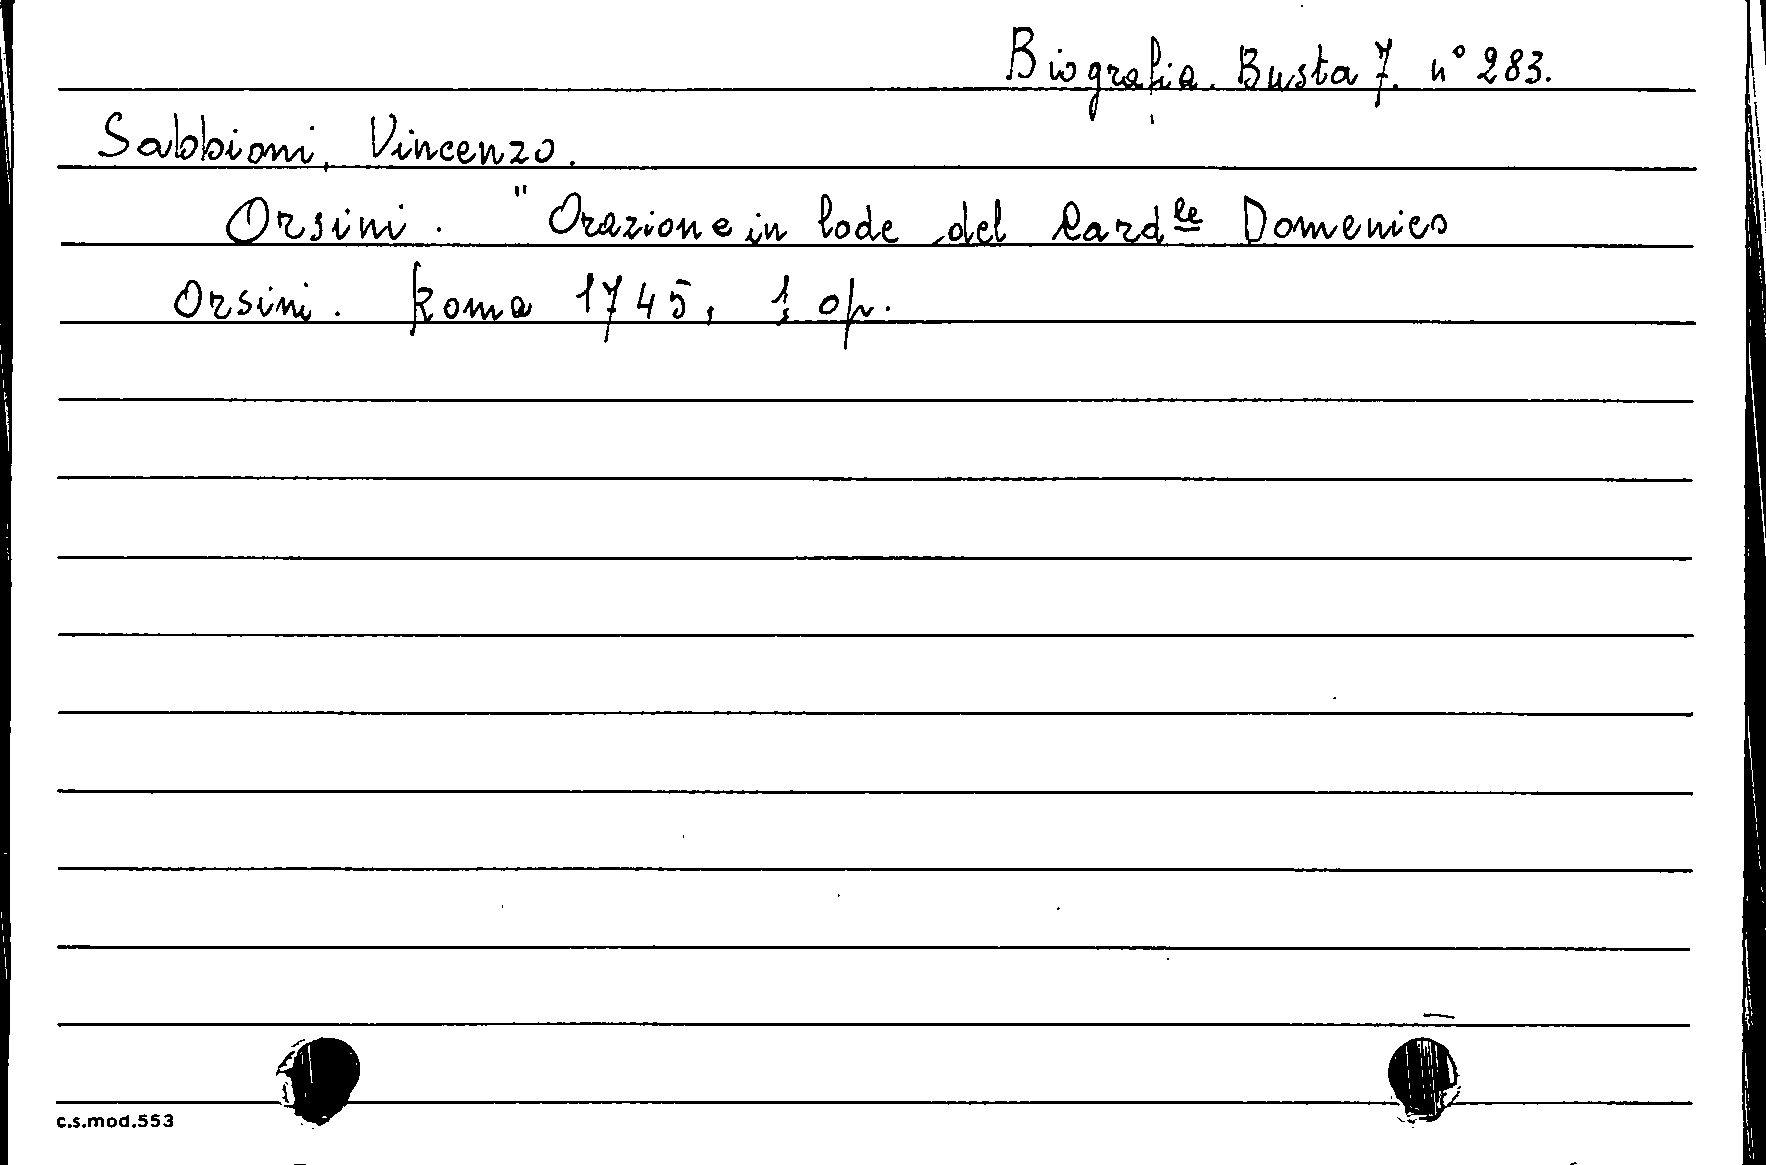 Biografia. Busta 7. n° 283.
Sabbioni, Vincenzo.
Orsini. "Orazione in lode del Card.le Domenico
Orsini. Roma 1745, 1 op.
c.s.mod.553